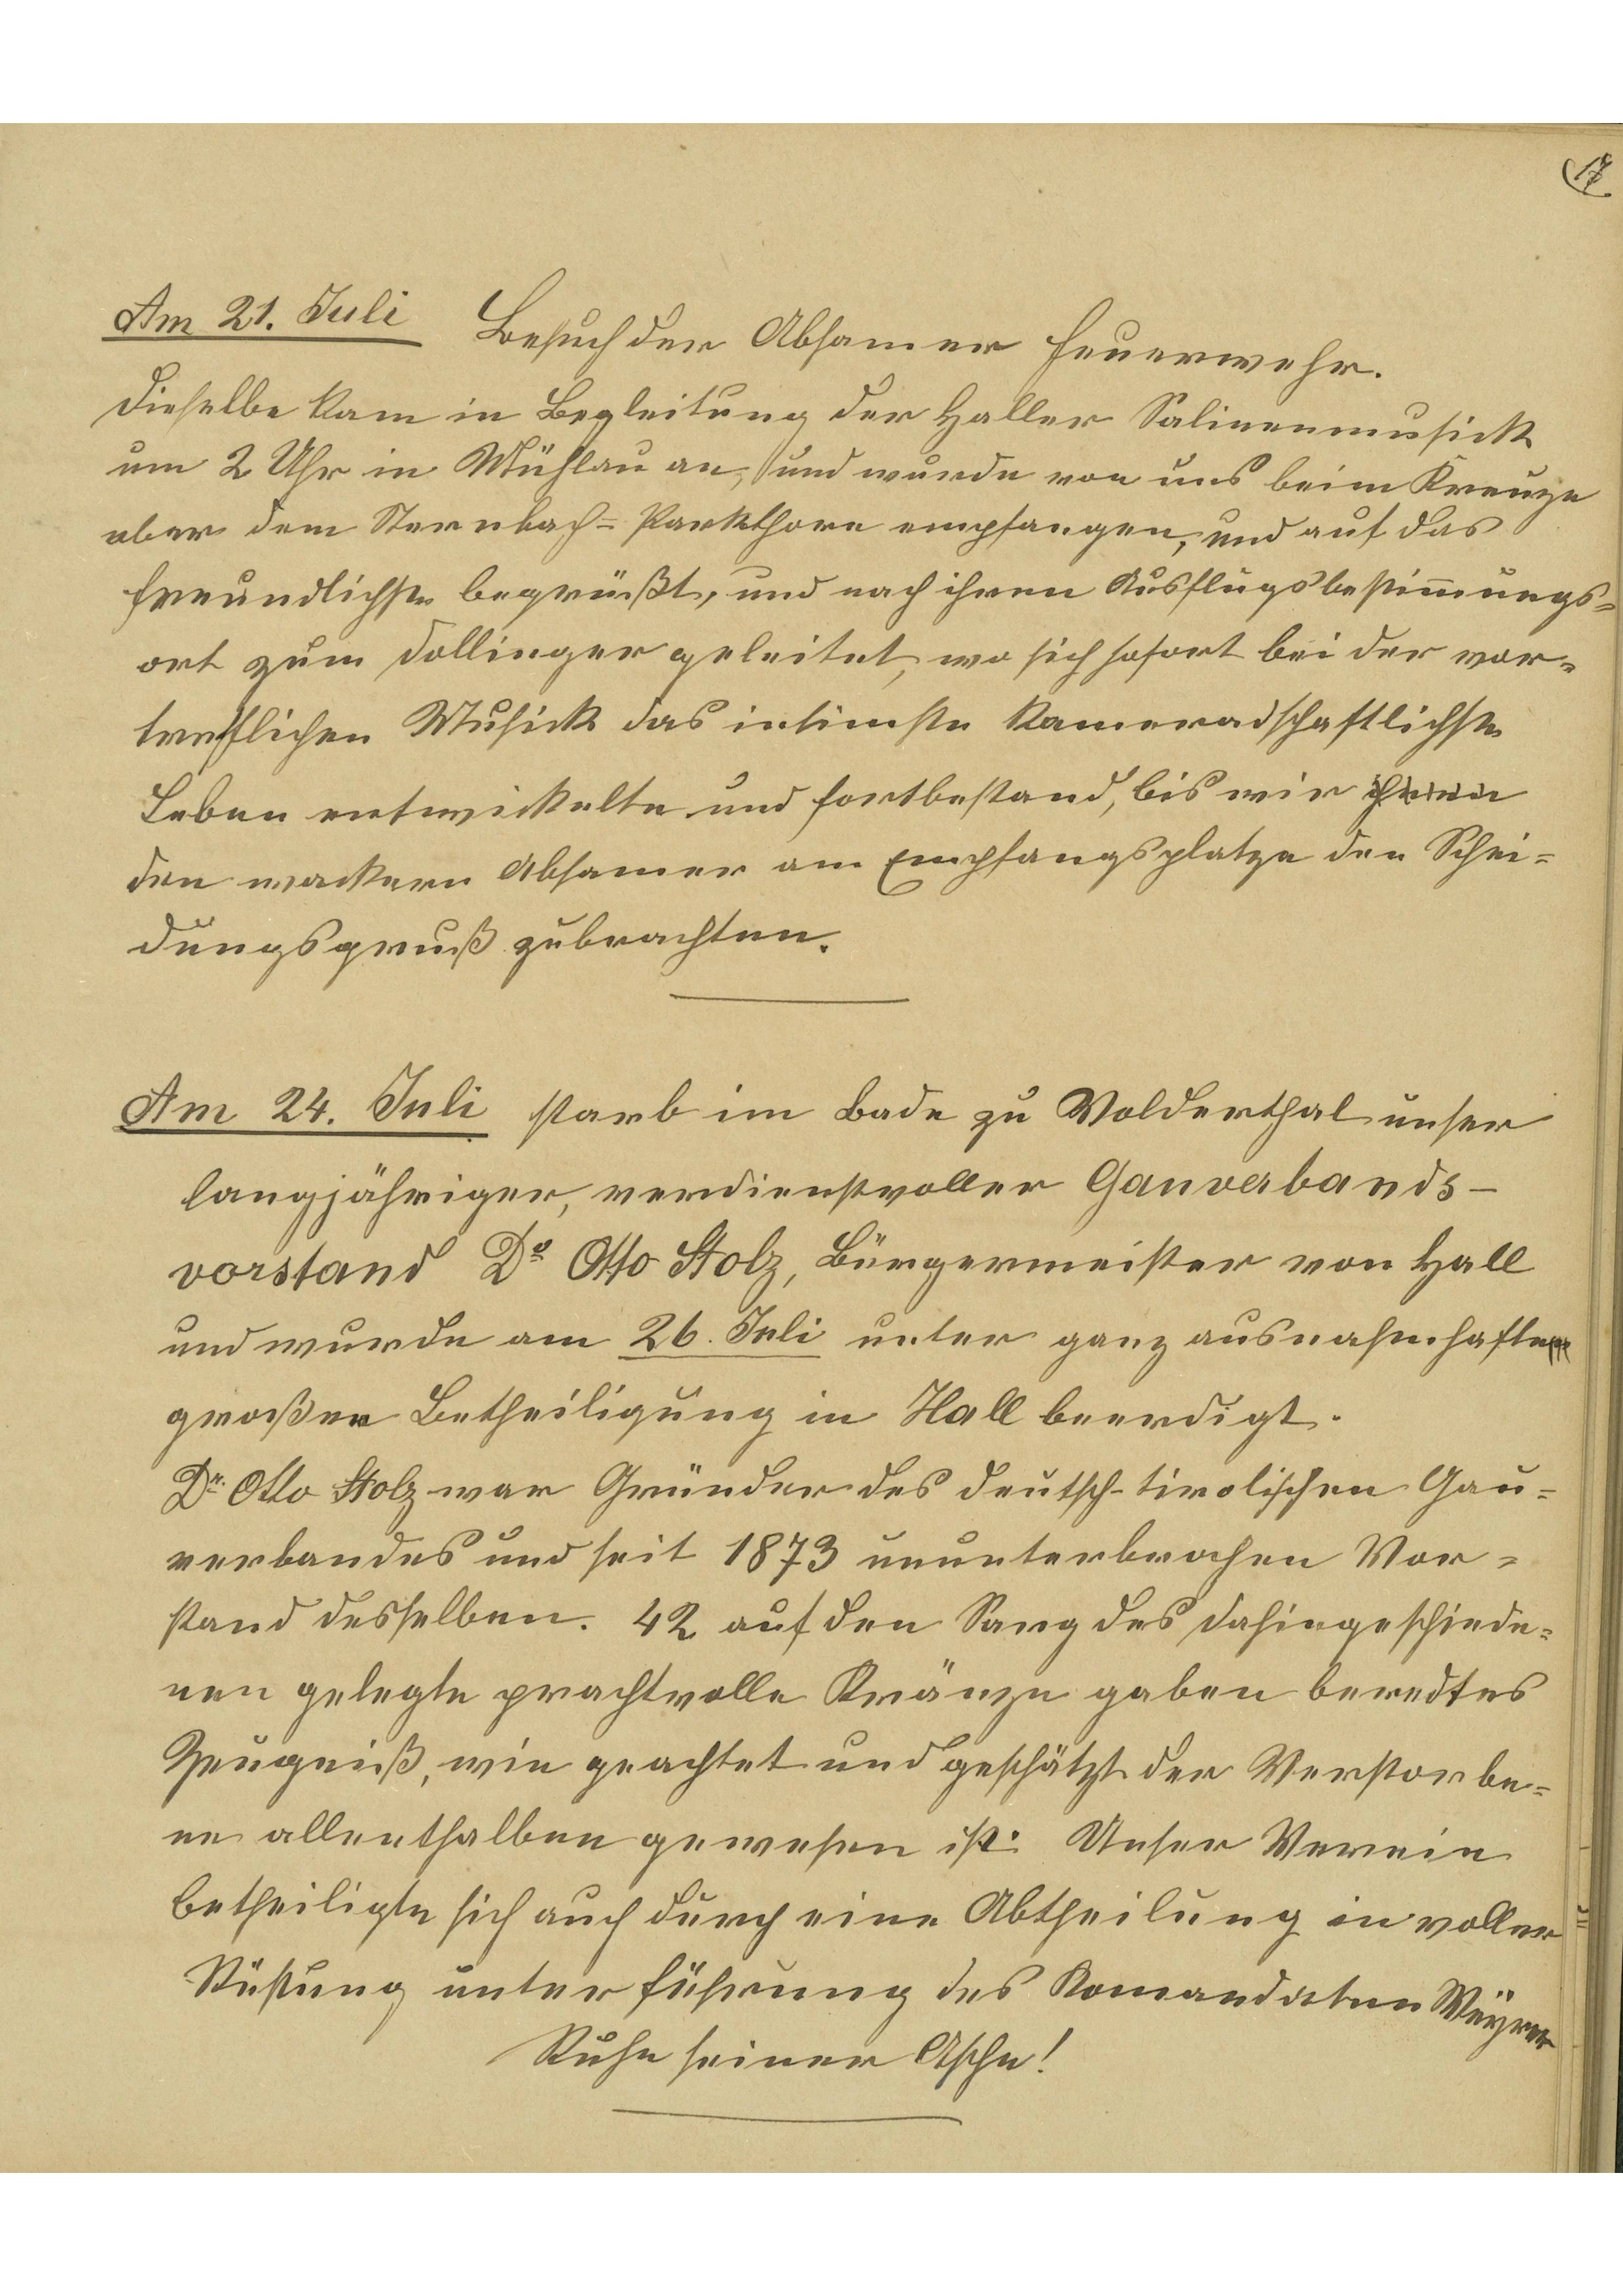 17
Am 21. Juli Besuch der Absamer Feuerwehr.
Dieselbe kam in Begleitung der Haller Salinenmusick
um 2 Uhr in Mühlau an, und wurde von uns beim Kreuze
ober dem Sternbach= Parkthore empfangen, und auf das
freundlichste begrüßt, und nach ihren Ausflugsbestim̅ungs=
ort zum Dollinger geleitet, wo sich sofort bei der vor=
trefflichen Musick das intimste kameradschaftlichste
Leben entwickelte und fortbestand, bis wir ihnen
den wackern Absamer am Empfangsplatze den Schei=
dungsgruß zubrachten.
Am 24. Juli starb im Bade zu Volderthal unser
langjähriger, verdienstvoller Gauverbands-
vorstand Dr Otto Stolz, Bürgermeister von Hall
und wurde am 26. Juli unter ganz ausnahmhafter
großer Betheiligung in Hall beerdigt.
Dr. Otto Stolz war Gründer des deutsch-tirolischen Gau=
verbandes und seit 1873 ununterbrochen Vor=
stand desselben. 42 auf den Sarg des Dahingeschiede=
nen gelegte prachtvolle Kränze gaben beredtes
Zeugniß, wie geachtet und geschätzt der Verstorbe=
ne allenthalben gewesen ist. Unser Verein
betheiligte sich auch durch eine Abtheilung in voller
Rüstung unter Führung des Komandaten Weyrer
Ruhe seiner Asche!